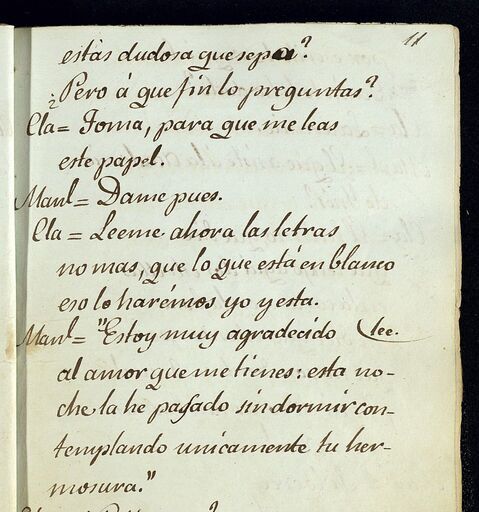 11
estàs dudosa que sepa?
¿Pero á que fin lo preguntas?
Cla= Toma, para que me leas
este papel.
Manl= Dame pues.
Cla= Leeme ahora las letras
no mas, que lo que está en blanco
eso lo harémos yo y esta.
Manl= "Estoy muy agradecido (lee.
al amor que me tienes: esta no-
che la he pasado sin dormir con-
templando unicamente tu her-
mosura."